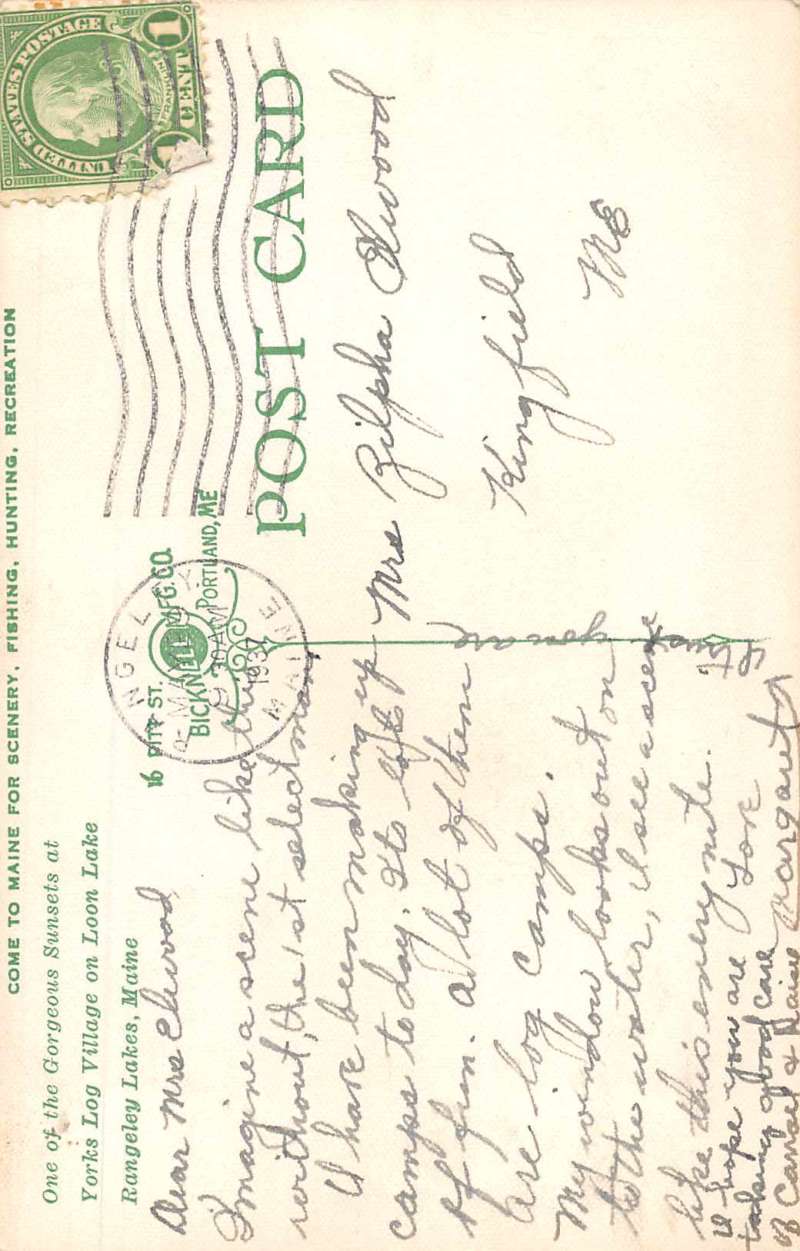 COME TO MAINE FOR SCENERY, FISHING, HUNTING, RECREATION
One of the Gorgeous Sunsets at
Yorks Log Village on Loon Lake
Rangeley Lakes, Maine
UNITED STATES POSTAGE
1 CENT 1
FRANKLIN
NGELEY
MAY
30 AM
193
MAINE
16 PITT ST.
BICKNELL MFG. CO
PORTLAND, ME
POST CARD
Dear Mrs Elwood
Imagine a scene like this
without, the 1st selectman
I have been making up
camps to day. Its lots
of fun. A lot of them
are log camps.
My window looks out on
to the water, I see a scene
like this every nite.
I hope you are
taking good care
of Cansel & Daisy
Love
Margaret
Mrs Zilpha Elwood
Kingfield
Me